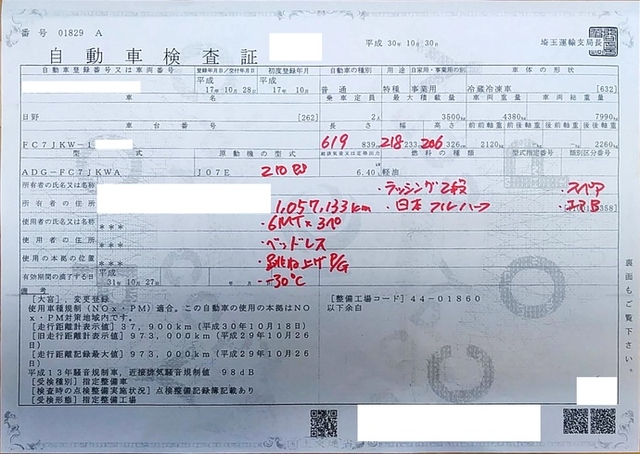 番号 01829 A
平成 30年10月30日
埼玉運輸支局長
自動車検査証
自動車登録番号又は車両番号 登録年月日/交付年月日 初度登録年月 自動車の種別 用途 自家用・事業用の別 車体の形状
平成 17年10月28日 平成 17年10月 普通 特種 事業用 冷蔵冷凍車 [632]
車名 乗車定員 最大積載量 車両重量 車両総重量
日野 [262] 2人 3500kg 4380kg 7990kg
車台番号 長さ 幅 高さ 前前軸重 前後軸重 後前軸重 後後軸重
FC7JKW-1 839cm 233cm 306cm 2120kg -kg -kg 2260kg
619 218 206
型式 原動機の型式 総排気量又は定格出力 燃料の種類 型式指定番号 類別区分番号
ADG-FC7JKWA J07E 6.40L 軽油
210PS
所有者の氏名又は名称
・ラッシング2段 ・スペア
所有者の住所
1,057,133km ・日本フルハーフ
358]
使用者の氏名又は名称 ***
・6MT×
使用者の住所 ***
・ベッドレス
使用の本拠の位置 ***
・跳ね上げP/G
有効期間の満了する日 平成 31年10月27日
・-30℃
備考
[大宮] 変更登録
使用車種規制(NOx・PM)適合。この自動車の使用の本拠はNO
x・PM対策地域内です。
[走行距離計表示値] 37,900km(平成30年10月18日)
[旧走行距離計表示値] 973,000km(平成29年10月26
日)
[走行距離記録最大値] 973,000km(平成29年10月26
日)
平成13年騒音規制車、近接排気騒音規制値 98dB
[受検種別] 指定整備車
[検査時の点検整備実施状況] 点検整備記録簿記載あり
[受検形態] 指定整備工場
[整備工場コード] 44-01860
以下余白
裏面もご覧下さい。